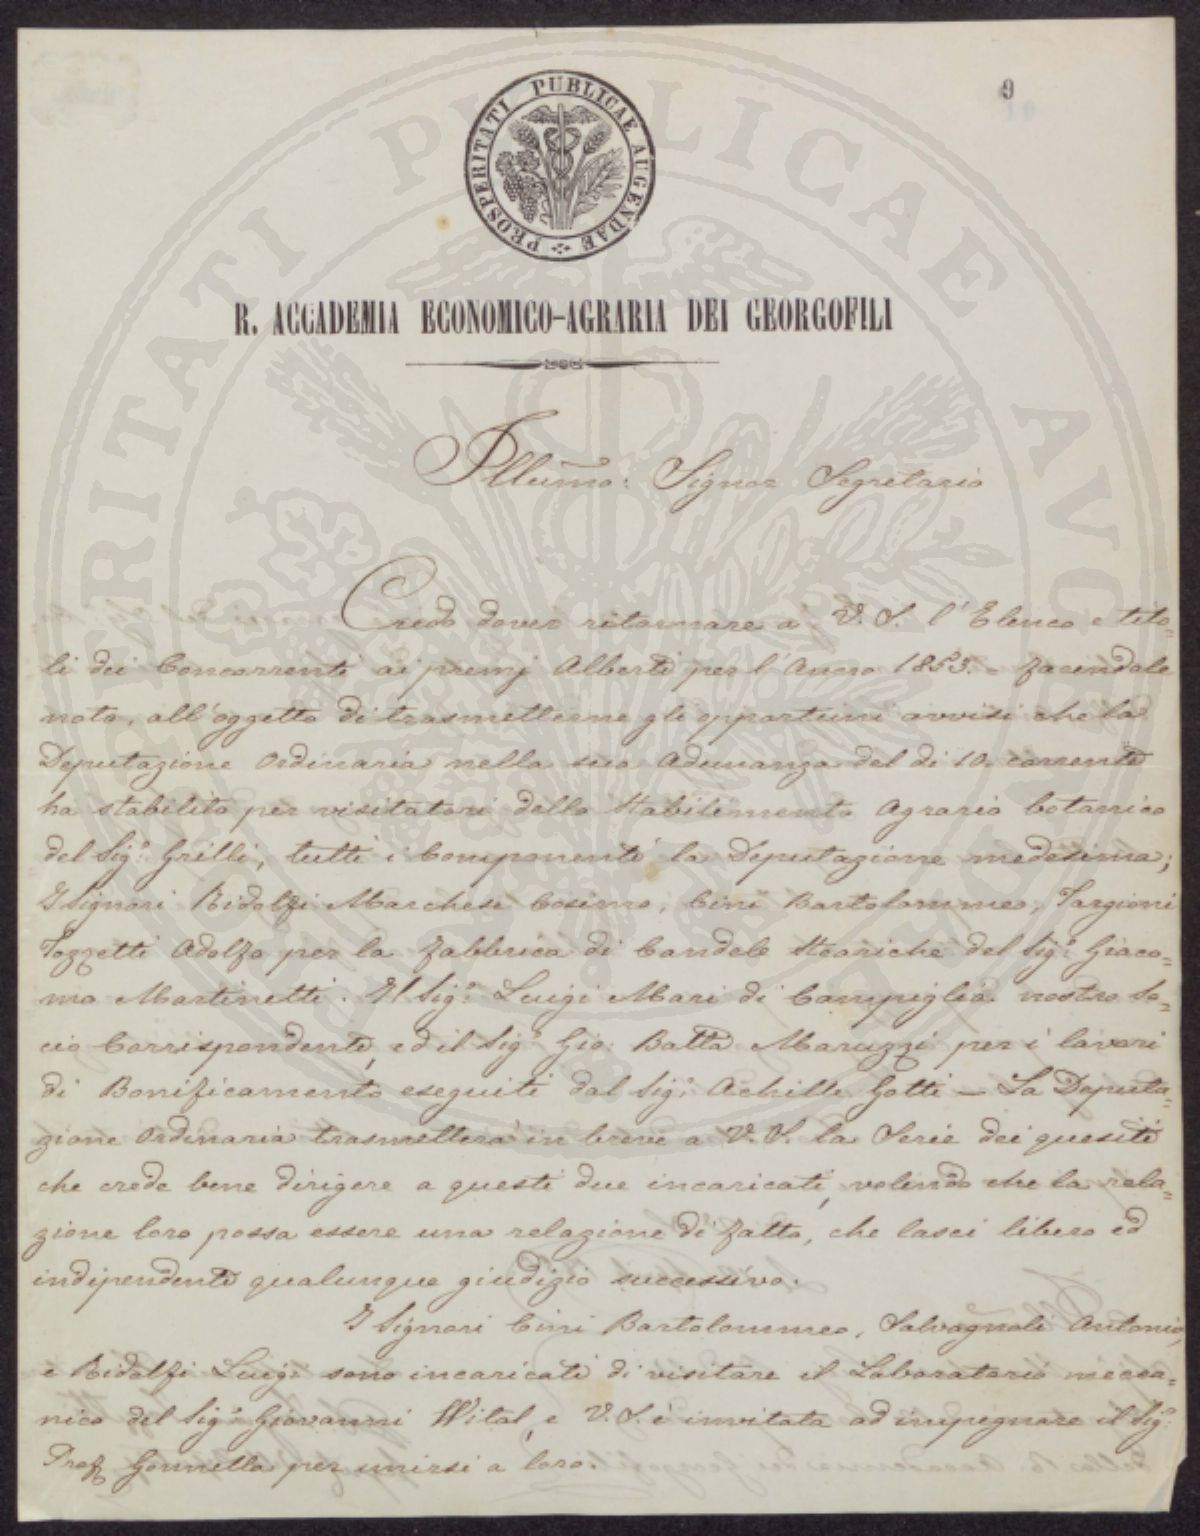 9
PROSPERITATI PUBLICAE AUGENDAE
R. ACCADEMIA ECONOMICO-AGRARIA DEI GEORGOFILI
Illumo: Signor Segretario
Credo dover ritornare a V. S. l'Elenco e tito-
li dei Concorrenti ai premj Alberti per l'Anno 1853. - facendole
noto, all'oggetto di trasmetterne gli opportuni avvisi che la
Deputazione Ordinaria nella sua Adunanza del di 10. corrente
ha stabilito per visitatori dello Stabilimento Agrario botanico
del Sigr. Grilli, tutti i Componenti la Deputazione medesima;
I Signori Ridolfi Marchese Cosimo, Cini Bartolommeo, Targioni
Tozzetti Adolfo per la fabbrica di Candele Steariche del Sigr. Giaco=
mo Martinetti. Il Sigr. Luigi Mari di Campiglia nostro So=
cio Corrispondente, ed il Sigr. Gio: Batta Maruzzi per i lavori
di Bonificamento eseguiti dal Sigr. Achille Gotti — La Deputa=
zione Ordinaria trasmetterà in breve a V. S. la Serie dei quesiti
che crede bene dirigere a questi due incaricati, volendo che la rela=
zione loro possa essere una relazione di fatto, che lasci libero ed
indipendente qualunque giudizio successivo.
I Signori Cini Bartolommeo, Salvagnoli Antonio,
e Ridolfi Luigi sono incaricati di visitare il Laboratorio mecca=
nico del Sigr. Giovanni Wital, e V. S. è invitata ad impegnare il Sigr.
Prof. Gonnella per unirsi a loro.